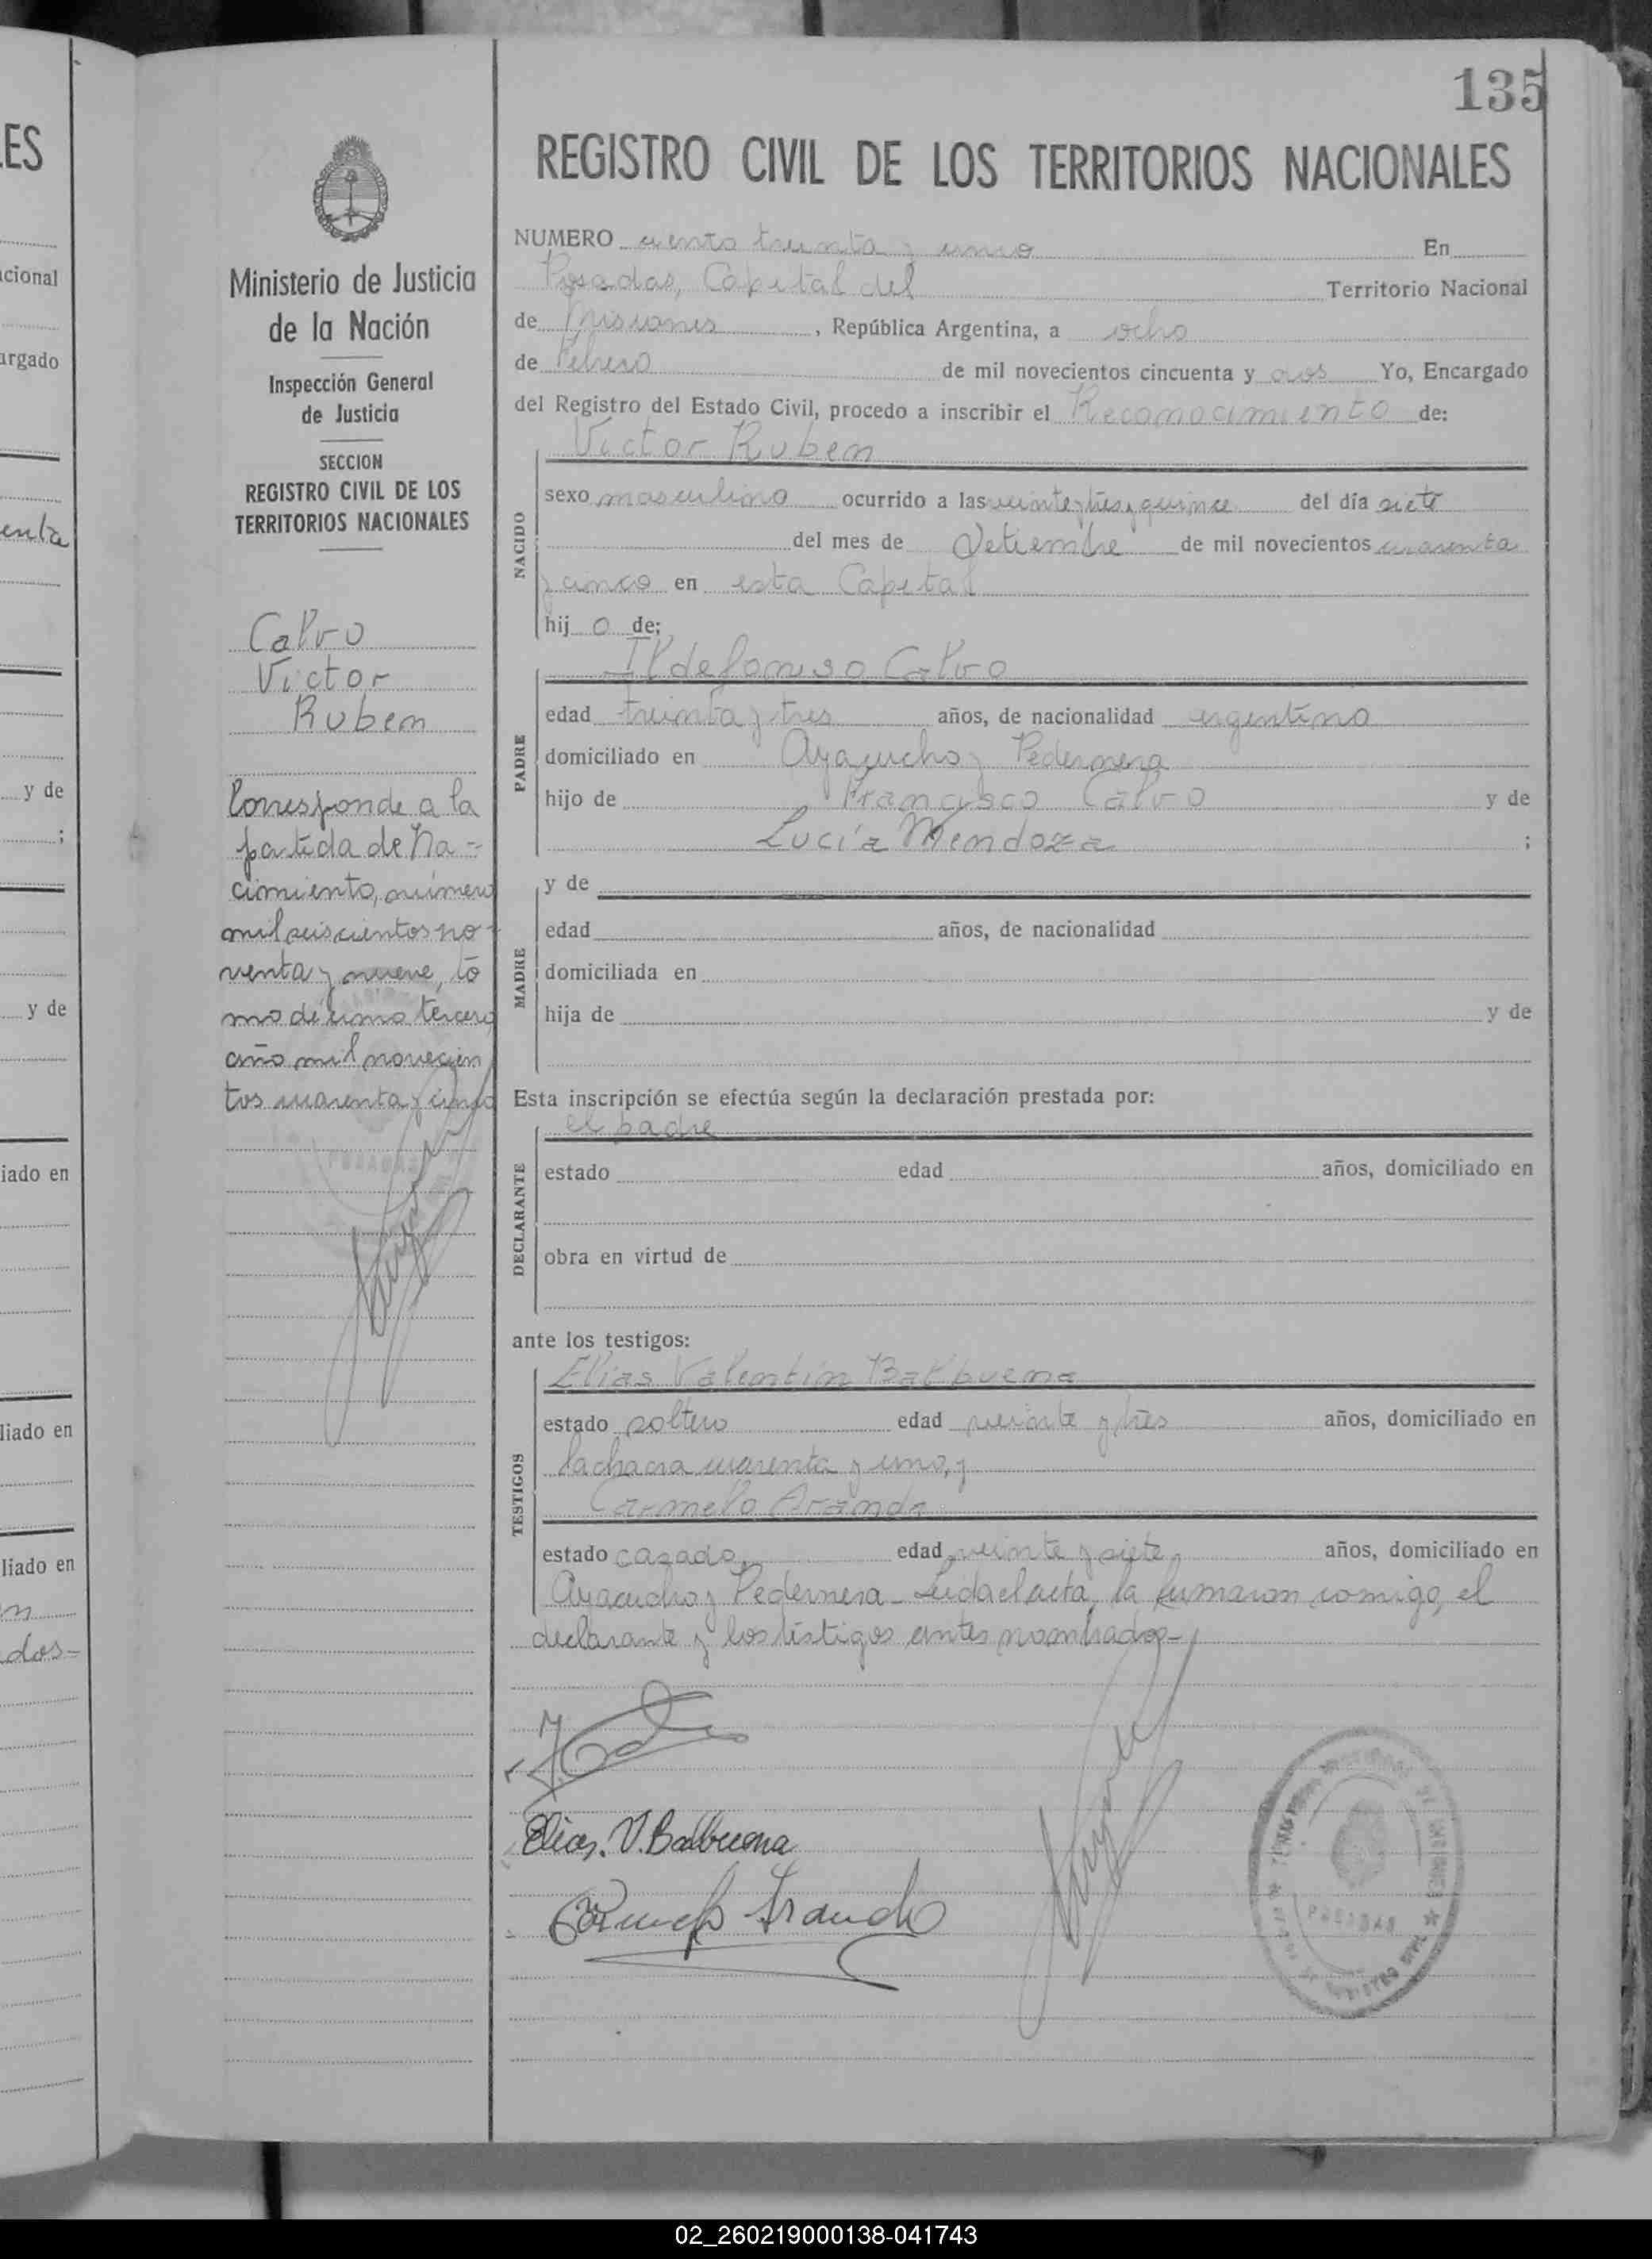 135
ES
cional
argado
enta
y de
;
y de
iado en
liado en
liado en
n
dos-
Ministerio de Justicia
de la Nación
Inspección General
de Justicia
SECCION
REGISTRO CIVIL DE LOS
TERRITORIOS NACIONALES
Calvo
Victor
Ruben
Corresponde a la
partida de Na-
cimiento, número
mil seiscientos no-
venta y nueve, to
mo décimo tercero
año mil novecien
tos cuarenta y cinco
POSADAS
REGISTRO CIVIL DE LOS TERRITORIOS NACIONALES
NUMERO ciento treinta y uno En
Posadas, Capital del Territorio Nacional
de Misiones, República Argentina, a ocho
de Febrero de mil novecientos cincuenta y dos Yo, Encargado
del Registro del Estado Civil, procedo a inscribir el Reconocimiento de:
Victor Ruben
NACIDO
sexo masculino ocurrido a las veintitres y quince del día siete
del mes de Setiembre de mil novecientos cuarenta
y cinco en esta Capital
hij o de:
Ildefonso Calvo
PADRE
edad treinta y tres años, de nacionalidad argentino
domiciliado en Ayacucho y Pedernera
hijo de Francisco Calvo y de
Lucía Mendoza ;
MADRE
y de
edad años, de nacionalidad
domiciliada en
hija de y de
Esta inscripción se efectúa según la declaración prestada por:
el padre
DECLARANTE
estado edad años, domiciliado en
obra en virtud de
ante los testigos:
TESTIGOS
Elias Valentin Balbuena
estado soltero edad veinte y tres años, domiciliado en
la chacra cuarenta y uno, y
Carmelo Aranda
estado casado, edad veinte y siete, años, domiciliado en
Ayacucho y Pedernera - Leida el acta, la firmaron comigo, el
declarante y los testigos antes nombrados-
Elias. V. Balbuena
Carmelo Aranda
POSADAS
02_260219000138-041743